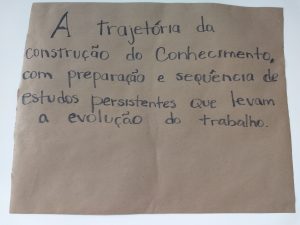 A trajetória da
construção do conhecimento,
com preparação e sequência de
estudos persistentes que levam
a evolução do trabalho.